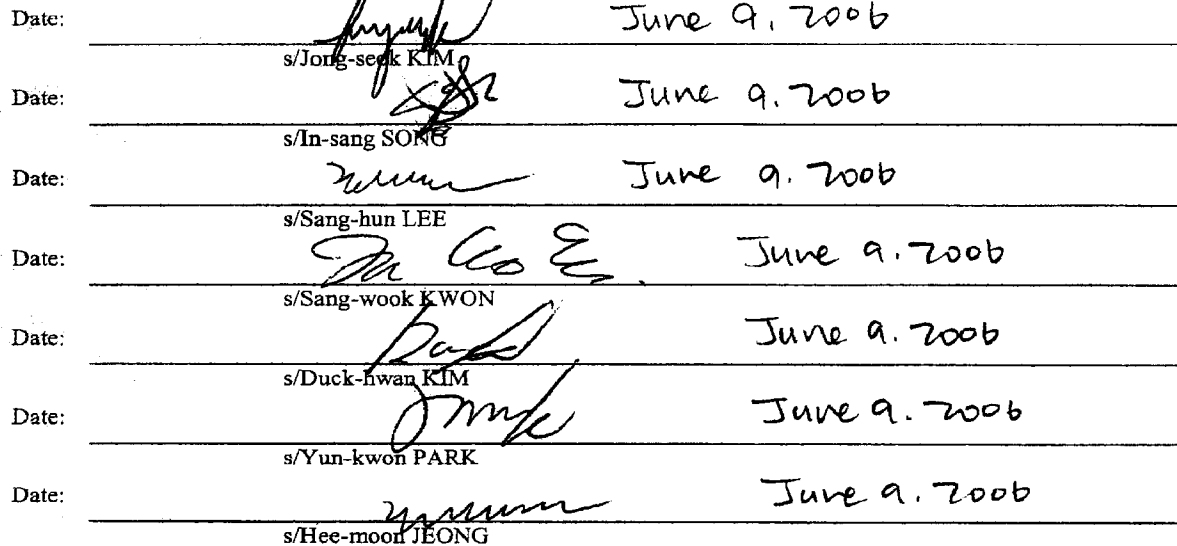 Date: June 9. 2006
s/Jong-seok KIM
Date: June 9. 2006
s/In-sang SONG
Date: June 9. 2006
s/Sang-hun LEE
Date: June 9. 2006
s/Sang-wook KWON
Date: June 9. 2006
s/Duck-hwan KIM
Date: June 9. 2006
s/Yun-kwon PARK
Date: June 9. 2006
s/Hee-moon JEONG